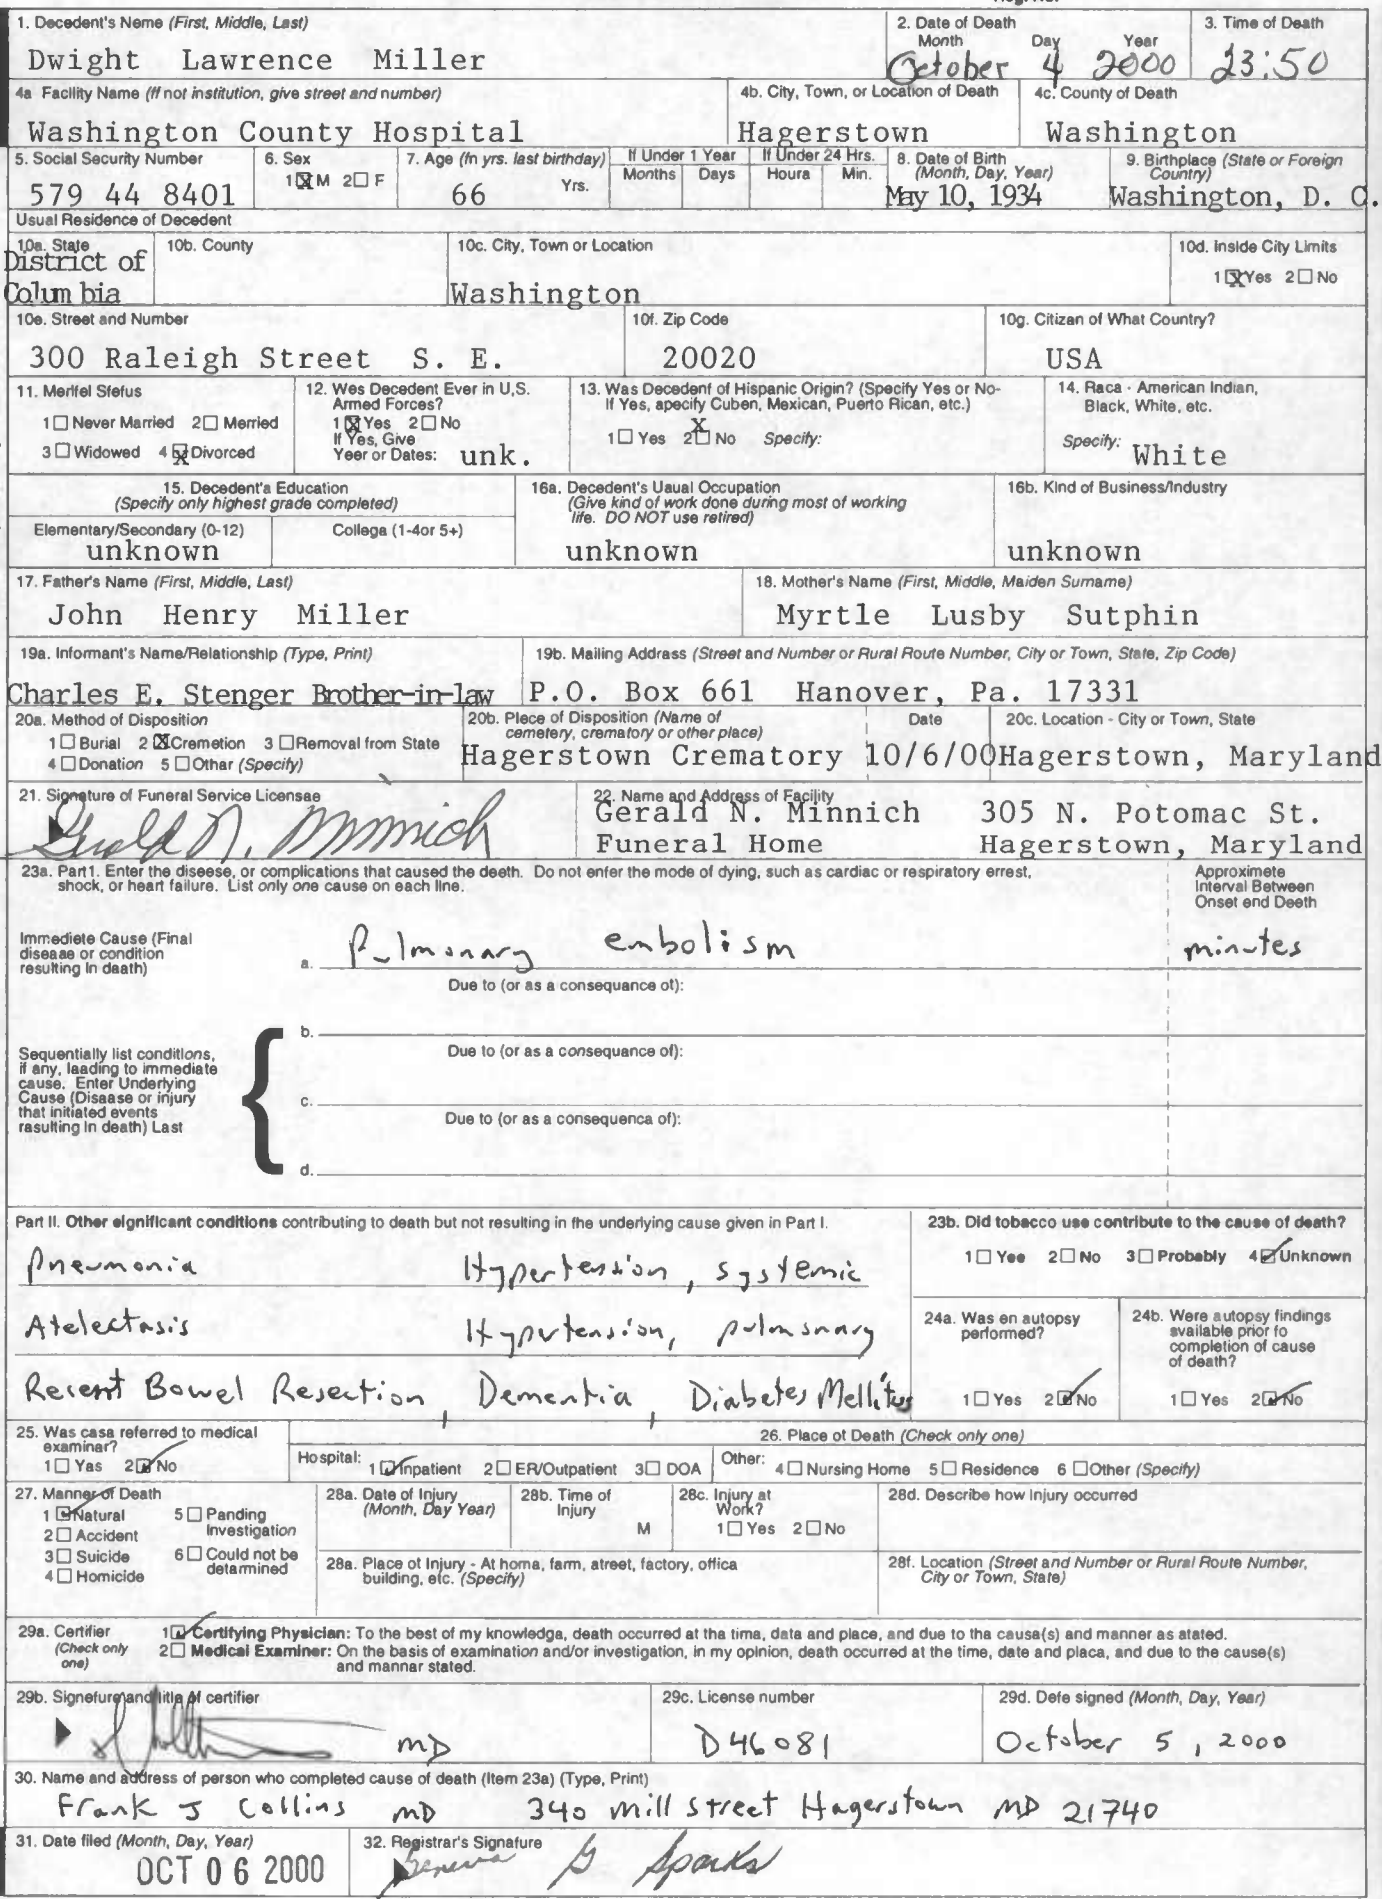 1. Decedent's Neme (First, Middle, Last)
Dwight Lawrence Miller
2. Date of Death
Month Day Year
October 4 2000
3. Time of Death
23:50
4a Facility Name (If not institution, give street and number)
Washington County Hospital
4b. City, Town, or Location of Death
Hagerstown
4c. County of Death
Washington
5. Social Security Number
579 44 8401
6. Sex
1☒M 2☐F
7. Age (In yrs. last birthday)
66 Yrs.
If Under 1 Year
Months Days
If Under 24 Hrs.
Houra Min.
8. Date of Birth
(Month, Day, Year)
May 10, 1934
9. Birthplace (State or Foreign
Country)
Washington, D. C.
Usual Residence of Decedent
10a. State
District of
Columbia
10b. County
10c. City, Town or Location
Washington
10d. Inside City Limits
1☒Yes 2☐No
10e. Street and Number
300 Raleigh Street S. E.
10f. Zip Code
20020
10g. Citizen of What Country?
USA
11. Merifel Stefus
1☐Never Married 2☐Merried
3☐Widowed 4☒Divorced
12. Wes Decedent Ever in U.S.
Armed Forces?
1☒Yes 2☐No
If Yes, Give
Yeer or Dates: unk.
13. Was Decedent of Hispanic Origin? (Specify Yes or No-
If Yes, apecify Cuben, Mexican, Puerto Rican, etc.)
1☐Yes 2☒No Specify:
14. Raca - American Indian,
Black, White, etc.
Specify: White
15. Decedent'a Education
(Specify only highest grade completed)
Elementary/Secondary (0-12) Collega (1-4or 5+)
unknown
16a. Decedent's Uaual Occupation
(Give kind of work done during most of working
life. DO NOT use retired)
unknown
16b. Kind of Business/Industry
unknown
17. Father's Name (First, Middle, Last)
John Henry Miller
18. Mother's Name (First, Middle, Maiden Surname)
Myrtle Lusby Sutphin
19a. Informant's Name/Relationship (Type, Print)
Charles E. Stenger Brother-in-law
19b. Mailing Address (Street and Number or Rural Route Number, City or Town, State, Zip Code)
P.O. Box 661 Hanover, Pa. 17331
20a. Method of Disposition
1☐Burial 2☒Cremetion 3☐Removal from State
4☐Donation 5☐Othar (Specify)
20b. Plece of Disposition (Name of
cemetery, crematory or other place)
Hagerstown Crematory
Date
10/6/00
20c. Location - City or Town, State
Hagerstown, Maryland
21. Signature of Funeral Service Licensae
Gerald N. Minnich
22. Name and Address of Facility
Gerald N. Minnich 305 N. Potomac St.
Funeral Home Hagerstown, Maryland
23a. Part1. Enter the diseese, or complications that caused the deeth. Do not enfer the mode of dying, such as cardiac or respiratory errest,
shock, or heart failure. List only one cause on each line.
Approximete
Interval Between
Onset end Deeth
Immediete Cause (Final
diseaae or condition
resulting In daath)
a. Pulmonary embolism
minutes
Due to (or as a consequence ot):
b.
Due to (or as a consequence of):
Sequentially list conditions,
if any, laading to immediate
cause. Enter Underlying
Cause (Disaase or injury
that initiated events
rasulting In death) Last
c.
Due to (or as a consequenca of):
d.
Part II. Other elgnificant conditions contributing to death but not resulting in fhe underlying cause given in Part I.
Pneumonia Hypertension, systemic
Atelectasis Hypertension, pulmonary
Recent Bowel Resection, Dementia, Diabetes Mellitus
23b. Did tobacco use contribute to the cause of death?
1☐Yee 2☐No 3☐Probably 4☑Unknown
24a. Was en autopsy
performed?
1☐Yes 2☑No
24b. Were autopsy findings
available prior fo
completion of cause
of death?
1☐Yes 2☑No
25. Was casa referred to medical
examinar?
1☐Yas 2☑No
26. Place ot Death (Check only one)
Hospital: 1☑Inpatient 2☐ER/Outpatient 3☐DOA Other: 4☐Nursing Home 5☐Residence 6☐Other (Specify)
27. Manner of Death
1☑Natural
2☐Accident
3☐Suicide
4☐Homicide
5☐Panding
Investigation
6☐Could not be
detarmined
28a. Date of Injury
(Month, Day Year)
28b. Time of
Injury
M
28c. Injury at
Work?
1☐Yes 2☐No
28d. Describe how Injury occurred
28a. Place ot Injury - At homa, farm, atreet, factory, offica
building, etc. (Specify)
28f. Location (Street and Number or Rural Route Number,
City or Town, State)
29a. Certifier
(Check only
one)
1☑Certifying Physician: To the best of my knowledga, death occurred at tha tima, data and place, and due to tha causa(s) and manner as atated.
2☐Medical Examiner: On the basis of examination and/or investigation, in my opinion, death occurred at the time, date and placa, and due to the cause(s)
and mannar stated.
29b. Signefure and title of certifier
MD
29c. License number
D46081
29d. Defe signed (Month, Day, Year)
October 5, 2000
30. Name and address of person who completed cause of death (Item 23a) (Type, Print)
Frank J Collins MD 340 Mill Street Hagerstown MD 21740
31. Date filed (Month, Day, Year)
OCT 06 2000
32. Registrar's Signature
Geneva G Sparks